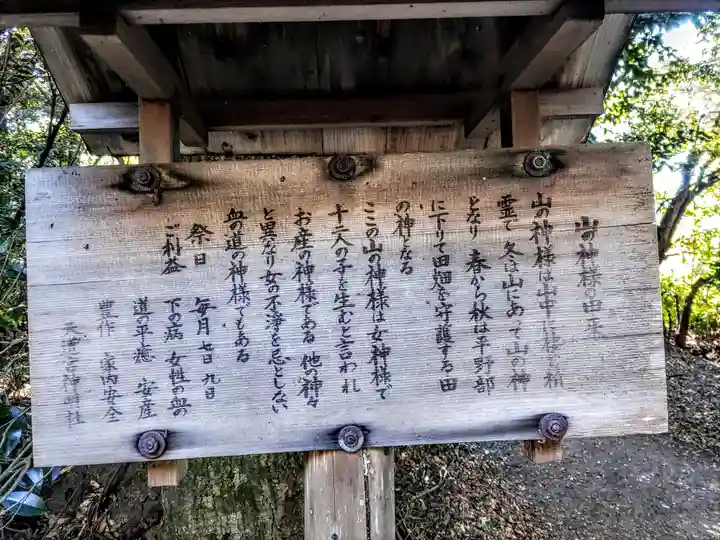 山の神様の由来
山の神様は山中に棲む精
霊で 冬は山にあって山の神
となり 春から秋は平野部
に下りて田畑を守護する田
の神となる
ここの山の神様は女神様で
十二人の子を生むと言われ
お産の神様である 他の神々
と異なり女の不浄を忌としない
血の道の神様でもある
祭日 毎月七日九日
ご利益 下の病 女性の血の
道の平癒 安産
豊作 家内安全
神社